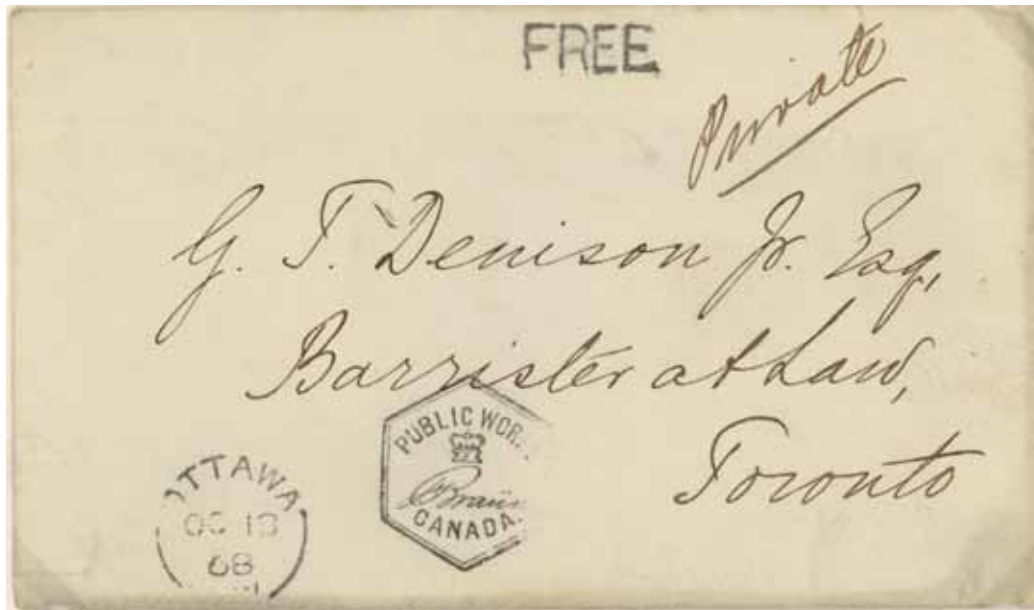 FREE
Private
G. T. Denison Jr. Esq,
Barrister at Law,
Toronto
PUBLIC WOR
Braün
CANADA.
OTTAWA
OC 13
68